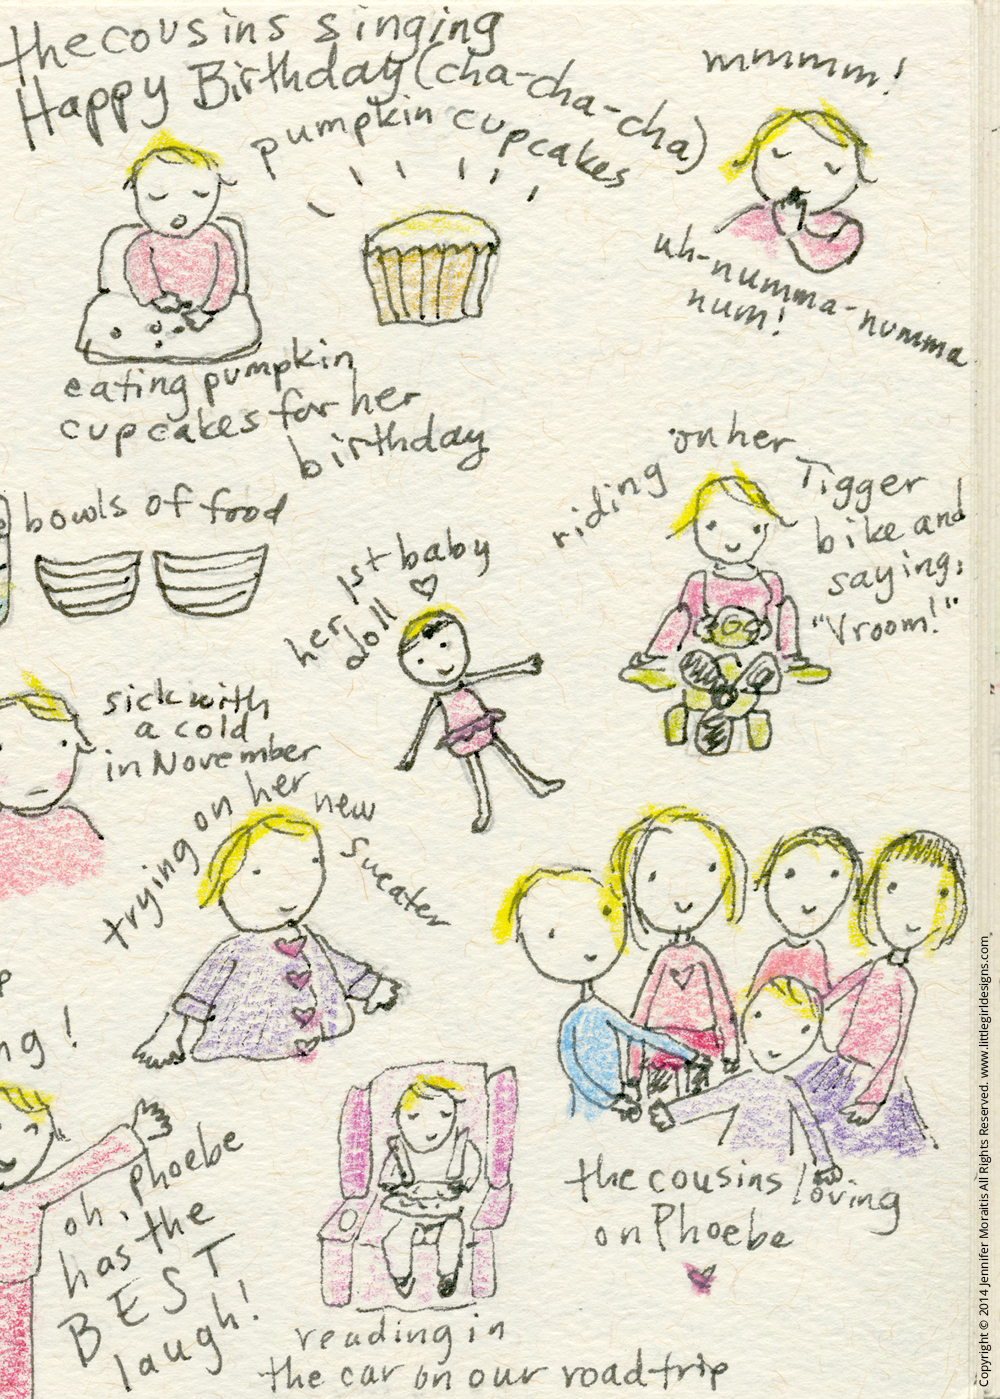 the cousins singing
Happy Birthday (cha-cha-cha)
pumpkin cupcakes
mmmm!
uh-numma-numma
num!
eating pumpkin
cupcakes for her
birthday
bowls of food
her 1st baby
doll
riding on her
Tigger
bike and
saying,
"Vroom!"
sick with
a cold
in November
trying on her new
sweater
ng!
oh, Phoebe
has the
BEST
laugh!
the cousins loving
on Phoebe
reading in
the car on our road trip
Copyright © 2014 Jennifer Moraitis All Rights Reserved. www.littlegirldesigns.com